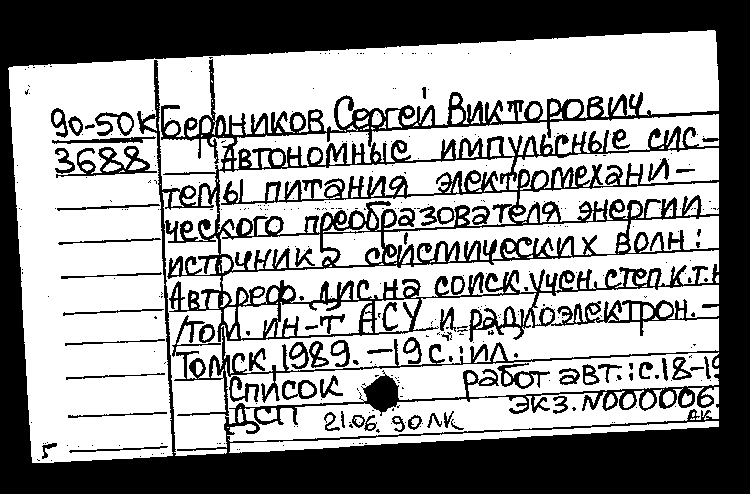 90-50К Бердников, Сергей Викторович.
3688 Автономные импульсные сис-
темы питания электромехани-
ческого преобразователя энергии
источника сейсмических волн:
Автореф. дис. на соиск. учен. степ. к.т.н
/Том. ин-т АСУ и радиоэлектрон. –
Томск, 1989. – 19 с.: ил.
Список работ авт.: с. 18-19
ДСП экз. №000006.
21.06.90 ЛК АК
5